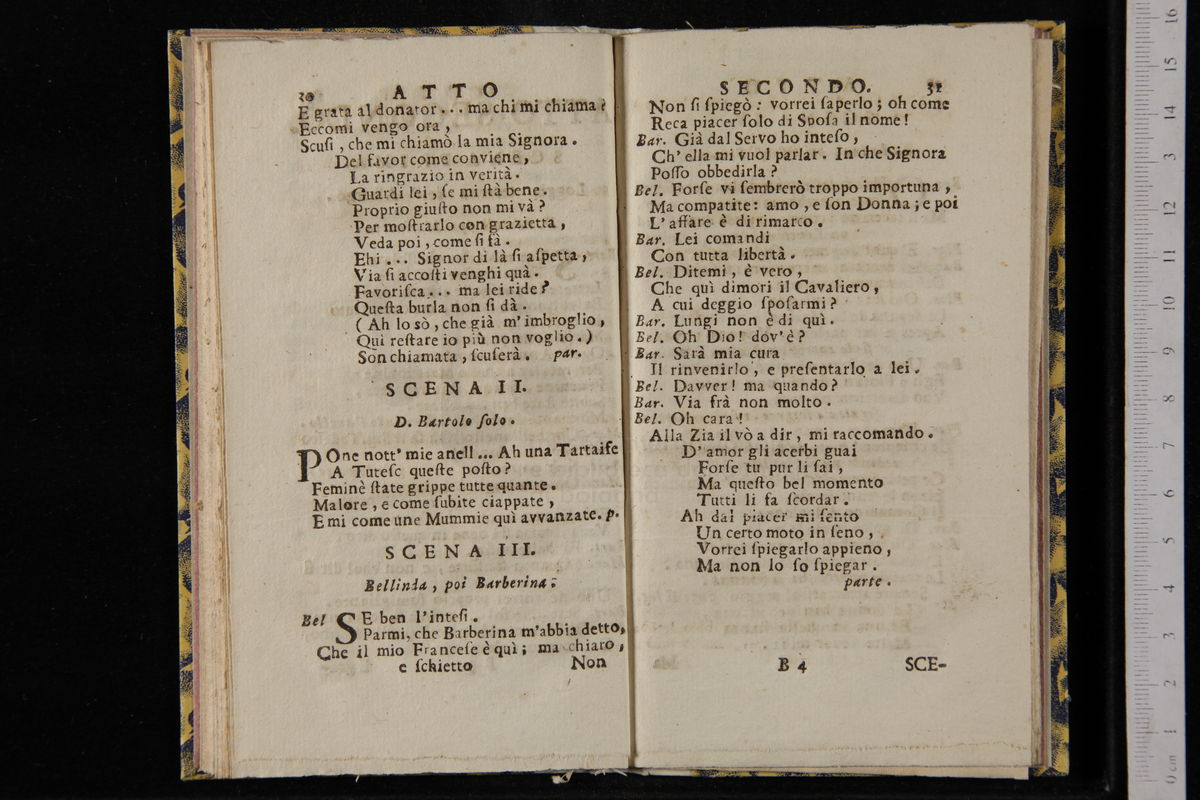 30 ATTO
E grata al donator... ma chi mi chiama?
Eccomi vengo ora,
Scuſi, che mi chiamò la mia Signora.
Del favor come conviene,
La ringrazio in verità.
Guardi lei, ſe mi ſtà bene.
Proprio giuſto non mi và?
Per moſtrarlo con grazietta,
Veda poi, come ſi fà.
Ehi... Signor di là ſi aſpetta,
Via ſi accoſti venghi quà.
Favoriſca... ma lei ride?
Queſta burla non ſi dà.
(Ah lo sò, che già m'imbroglio,
Qui reſtare io più non voglio.)
Son chiamata, ſcuſerà. par.
SCENA II.
D. Bartolo ſolo.
POne nott' mie anell... Ah una Tartaife
A Tuteſc queſte poſto?
Feminè ſtate grippe tutte quante.
Malore, e come ſubite ciappate,
E mi come une Mummie quì avvanzate. p.
SCENA III.
Bellinda, poi Barberina.
Bel SE ben l'inteſi.
Parmi, che Barberina m'abbia detto,
Che il mio Franceſe è quì; ma chiaro,
e ſchietto Non
SECONDO. 31
Non ſi ſpiegò: vorrei ſaperlo; oh come
Reca piacer ſolo di Spoſa il nome!
Bar. Già dal Servo ho inteſo,
Ch' ella mi vuol parlar. In che Signora
Poſſo obbedirla?
Bel. Forſe vi ſembrerò troppo importuna,
Ma compatite: amo, e ſon Donna; e poi
L' affare è di rimarco.
Bar. Lei comandi
Con tutta libertà.
Bel. Ditemi, è vero,
Che quì dimori il Cavaliero,
A cui deggio ſpoſarmi?
Bar. Lungi non è di quì.
Bel. Oh Dio! dov'è?
Bar. Sarà mia cura
Il rinvenirlo, e preſentarlo a lei.
Bel. Davver! ma quando?
Bar. Via frà non molto.
Bel. Oh cara!
Alla Zia il vò a dir, mi raccomando.
D' amor gli acerbi guai
Forſe tu pur li ſai,
Ma queſto bel momento
Tutti li fa ſcordar.
Ah dal piacer mi ſento
Un certo moto in ſeno,
Vorrei ſpiegarlo appieno,
Ma non lo ſo ſpiegar.
parte.
B 4 SCE-
0 cm 1 2 3 4 5 6 7 8 9 10 11 12 13 14 15 16